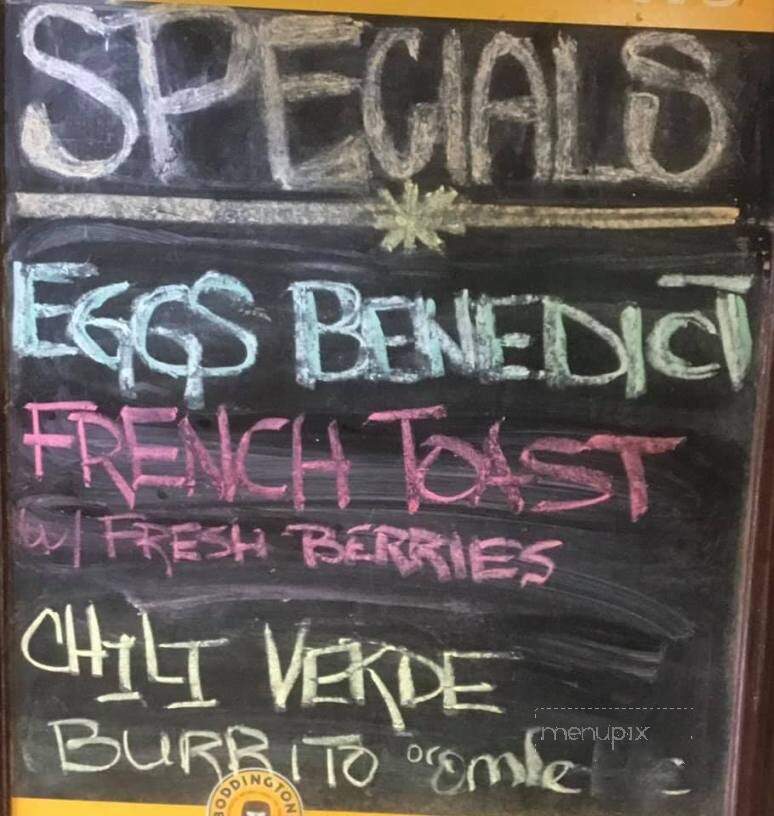 SPECIALS
EGGS BENEDICT
FRENCH TOAST
w/ FRESH BERRIES
CHILI VERDE
BURRITO or
menupix
BODDINGTON